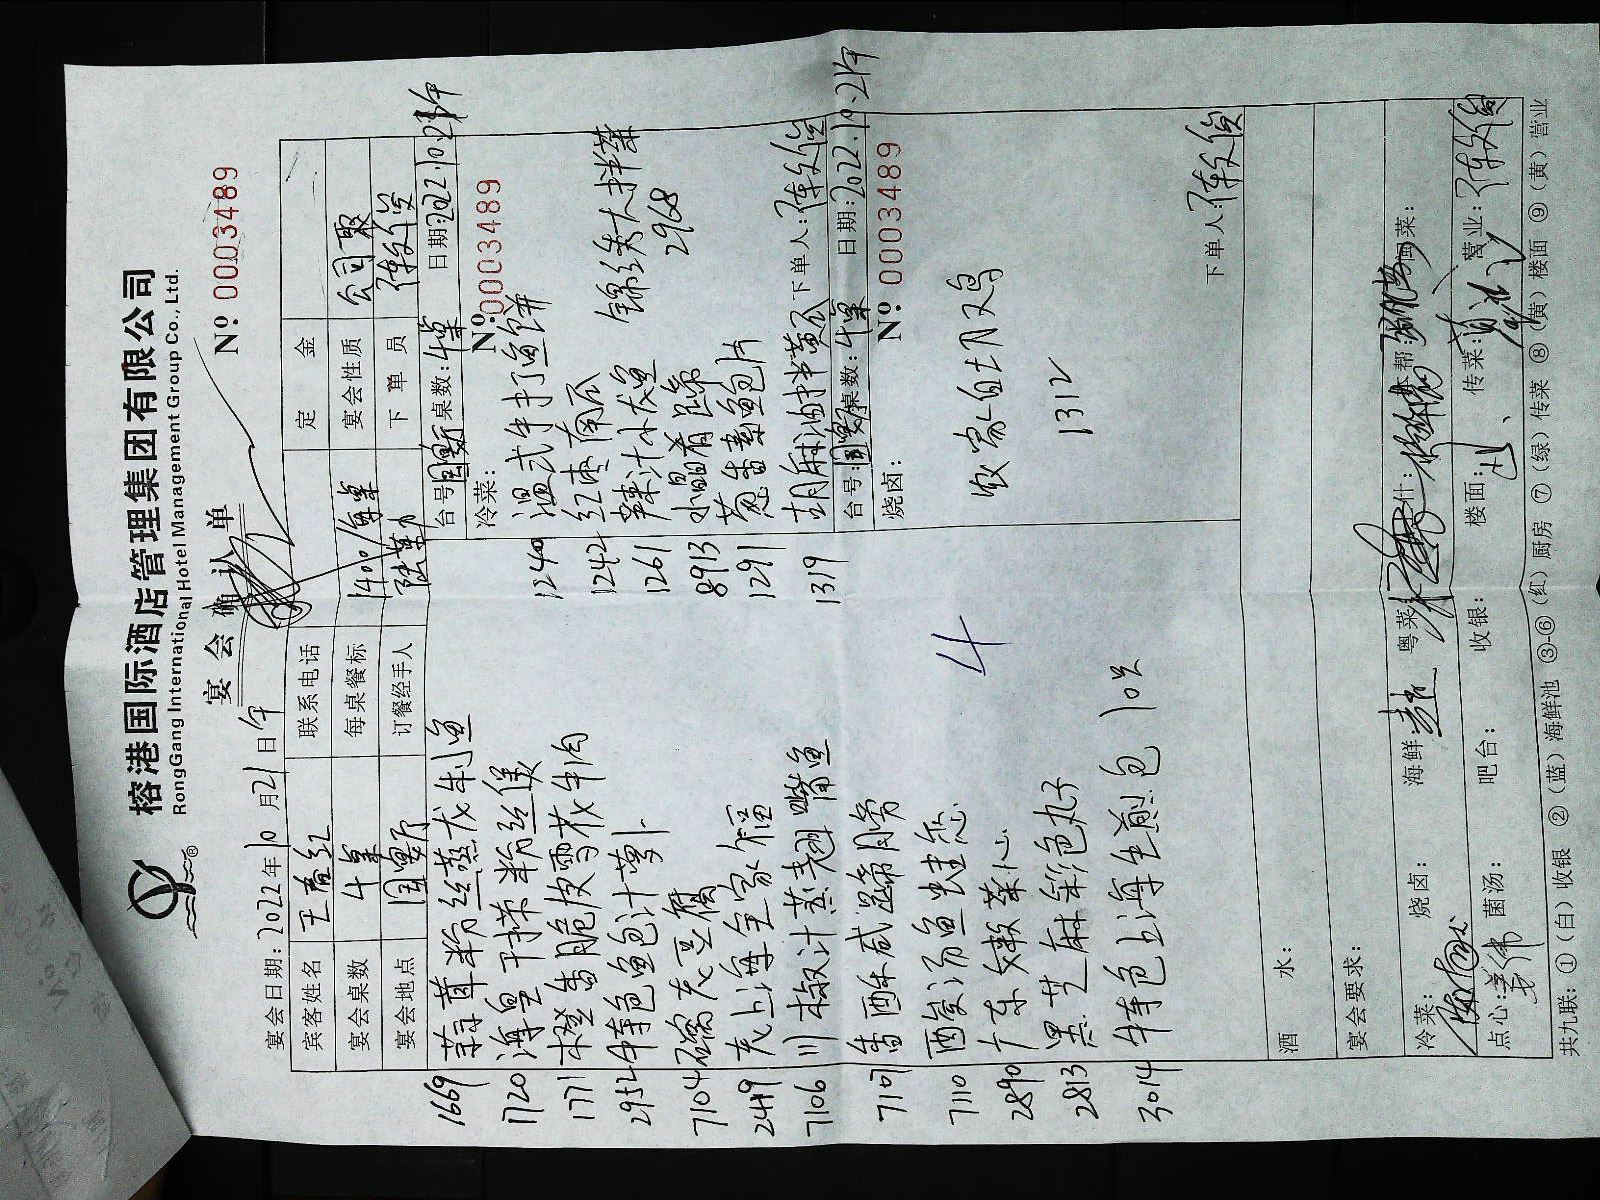 榕港国际酒店管理集团有限公司
RongGang International Hotel Management Group Co., Ltd.
宴会确认单
№ 0003489
宴会日期: 2022年10月21日午
宾客姓名 王春红 联系电话 定金
宴会桌数 4桌 每桌餐标 1400/每桌 宴会性质 公司聚
宴会地点 国宴厅 订餐经手人 下单员
1669 蒜茸粉丝蒸龙利鱼
1720 海皇干捞粉丝煲
1771 橙香脆皮雪花牛肉
2952 特色鲍汁萝卜
7104
2449 大上海全家福
7106 川椒汁蒸翘嘴鱼
7107 香酥咸蹄膀
7110 酸汤鱼蛙恋
2890 广东嫩菜心
2813 黑芝麻彩色丸子
3014 特色上海生煎包 10只
4
台号: 国宴厅 桌数: 4桌 日期: 2022.10.21午
冷菜:
№ 0003489
1240 温式手打鱼饼
1242 红枣南瓜
1261 辣汁小龙鱼
8913 水晶肴蹄
1291 葱香素鲍片
1319 胡麻油拌黄瓜
锦绣大拌菜
2968
下单人:
台号: 国宴厅 桌数: 4桌 日期: 2022.10.21午
烧卤:
№ 0003489
农家白切鸡
1312
下单人:
酒水:
宴会要求:
冷菜: 烧卤: 海鲜: 粤菜: 什: 本帮: 闽菜:
点心: 菌汤: 吧台: 收银: 楼面: 传菜: 营业:
共九联: ①(白)收银 ②(蓝)海鲜池 ③-⑥(红)厨房 ⑦(绿)传菜 ⑧(黄)楼面 ⑨(黄)营业